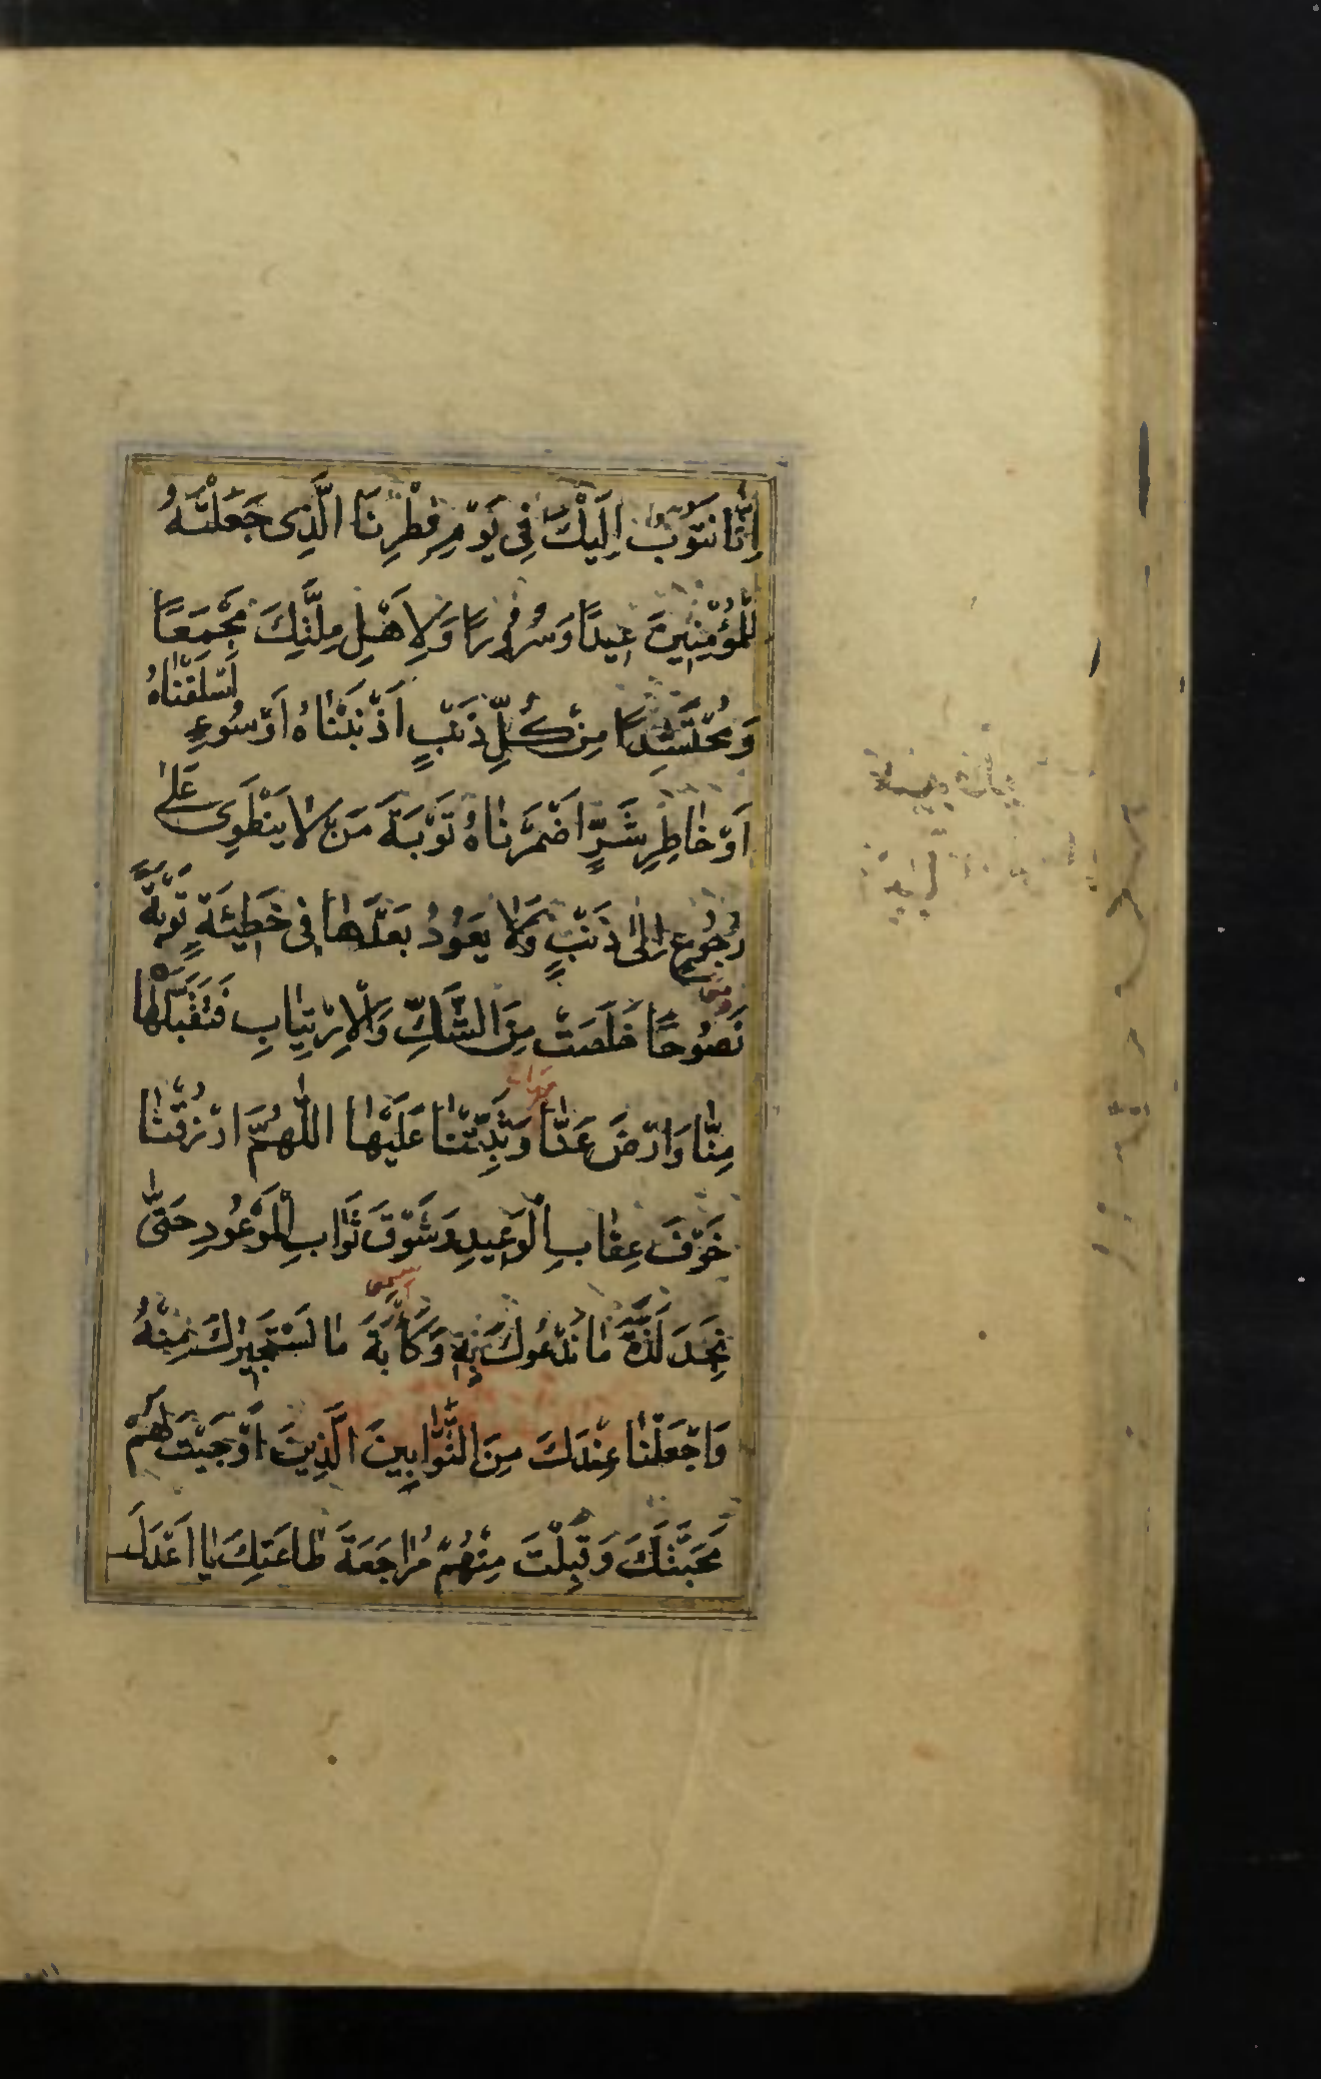 اِنّٰا نَتُوبُ اِلَيْكَ فِي يَوْمِ فِطْرِنَا الَّذِى جَعَلْتَهُ
لِلْمُؤْمِنِينَ عِيدًا وَسُرُورًا وَلِاَهْلِ مِلَّتِكَ مَجْمَعًا
وَمُحْتَشَدًا مِنْ كُلِّ ذَنْبٍ اَذْنَبْنَاهُ اَوْ سُوءٍ اَسْلَفْنَاهُ
اَوْ خٰاطِرِ شَرٍّ اَضْمَرْنَاهُ تَوْبَةَ مَنْ لَا يَنْطَوِى عَلىٰ
رُجُوعٍ اِلىٰ ذَنْبٍ وَلَا يَعُودُ بَعْدَهٰا فِى خَطِيئَةٍ تَوْبَةً
نَصُوحًا خَلَصَتْ مِنَ الشَّكِّ وَالْاِرْتِيٰابِ فَتَقَبَّلْهٰا
مِنّٰا وَارْضَ عَنّٰا وَثَبِّتْنٰا عَلَيْهٰا اللّٰهُمَّ ارْزُقْنٰا
خَوْفَ عِقٰابِ الْوَعِيدِ وَشَوْقَ ثَوٰابِ الْمَوْعُودِ حَتّٰى
نَجِدَ لَذَّةَ مٰا نَدْعُوكَ بِهِ وَكَأْبَةَ مٰا نَسْتَجِيرُكَ مِنْهُ
وَاجْعَلْنٰا عِنْدَكَ مِنَ التَّوّٰابِينَ الَّذِينَ اَوْجَبْتَ لَهُمْ
مَحَبَّتَكَ وَقَبِلْتَ مِنْهُمْ مُرٰاجَعَةَ طٰاعَتِكَ يٰا اَعْدَلَ